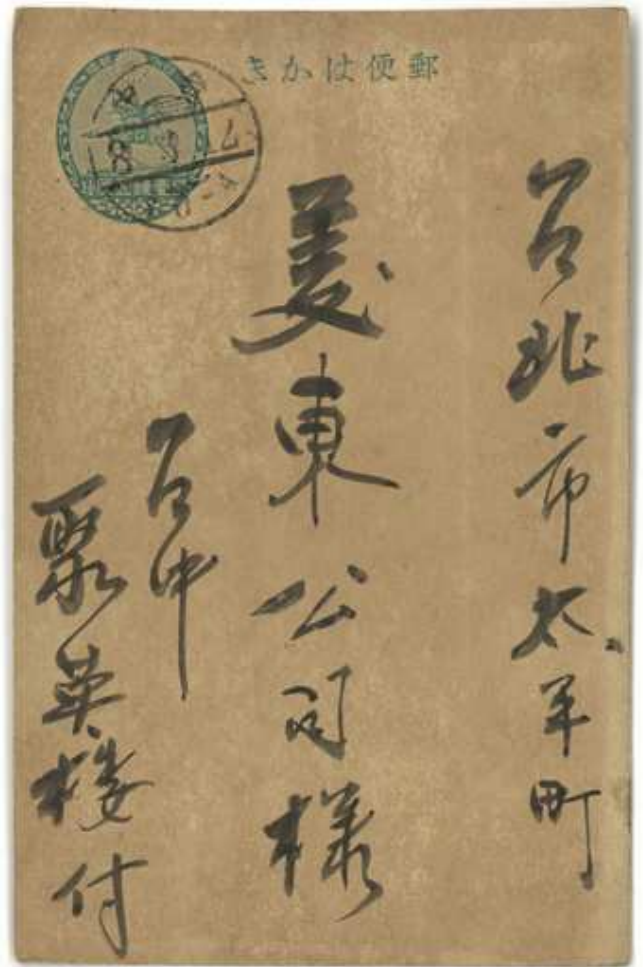 郵便はかき
台北市太平町
菱東公司様
台中
聚英楼付